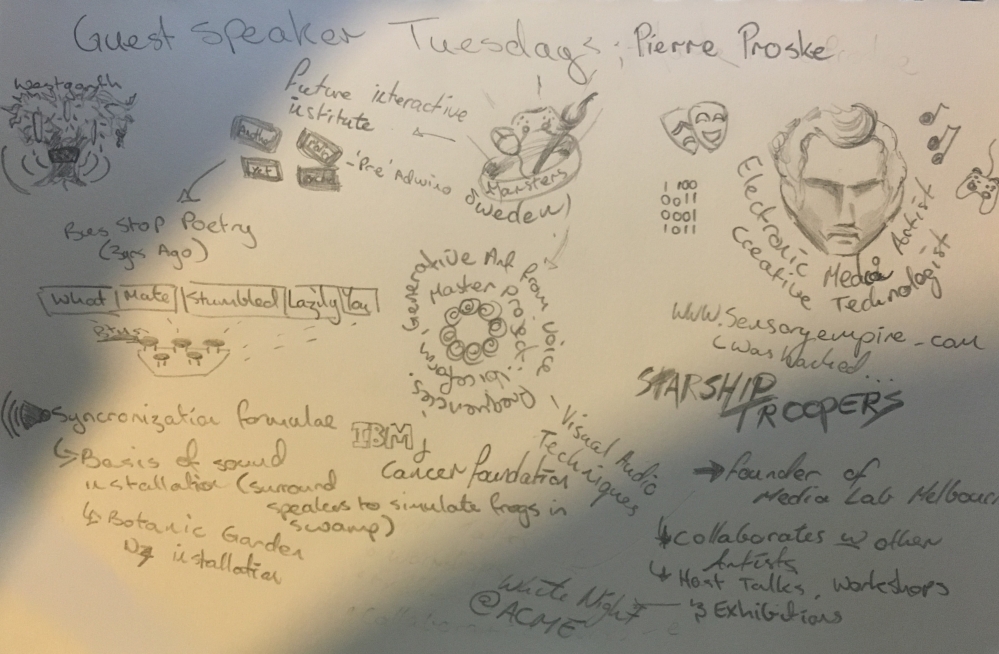 Guest Speaker Tuesdays; Pierre Proske
Westgarth
Future interactive
institute
text
'Pre' Adwino
Mansters
Sweden)
1 100
0011
0001
1011
Electronic Media Artist
Creative Technologist
www.Sensoryempire.com
(was hacked...
Bus Stop Poetry
(3yrs Ago)
What Mate Stumbled Lazily You
Generative Art from Voice
Master project
frequencies
Visual Audio
Techniques
STARSHIP
TROOPERS
Syncronization formulae
Basis of sound
installation (surround
speakers to simulate frogs in
swamp)
Botanic Garden
NZ installation
IBM &
Cancer foundation
founder of
Media Lab Melbourn
Collaborates w other
Artists
Host Talks, Workshops
& Exhibitions
White Night
@ACME